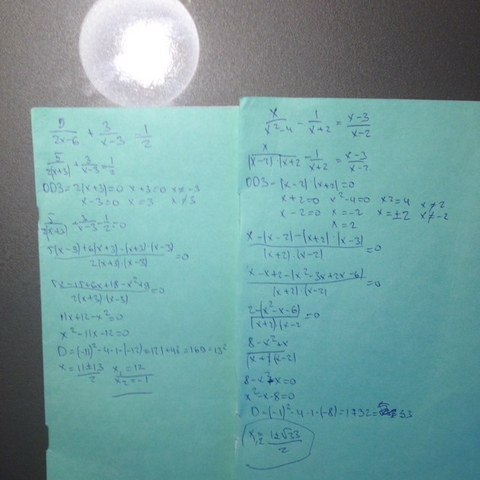 5/(2x-6) + 3/(x-3) = 1/2
5/(2(x+3)) + 3/(x-3) = 1/2
ОДЗ = 2(x+3)=0 x+3=0 x≠-3
x-3=0 x=3 x≠3
5/(2(x+3)) + 3/(x-3) - 1/2 = 0
(5(x-3)+6(x+3)-(x+3)·(x-3))/(2(x+3)·(x-3)) = 0
(5x-15+6x+18-x²+9)/(2(x+3)·(x-3)) = 0
11x+12-x²=0
x²-11x-12=0
D=(-11)²-4·1·(-12)=121+48=169=13²
x=(11±13)/2 x₁=12
x₂=-1
x/(x²-4) - 1/(x+2) = (x-3)/(x-2)
x/((x-2)·(x+2)) - 1/(x+2) = (x-3)/(x-2)
ОДЗ=(x-2)·(x+2)=0
x+2=0 x²-4=0 x²=4 x≠2
x-2=0 x=-2 x=±2 x≠-2
x=2
(x-(x-2)-(x+2)·(x-3))/((x+2)·(x-2)) = 0
(x-x+2-(x²-3x+2x-6))/((x+2)·(x-2)) = 0
(2-(x²-x-6))/((x+2)·(x-2)) = 0
(8-x²+x)/((x+2)·(x-2))
8-x²+x=0
x²-x-8=0
D=(-1)²-4·1·(-8)=1+32=33
x₁,₂=(1±√33)/2